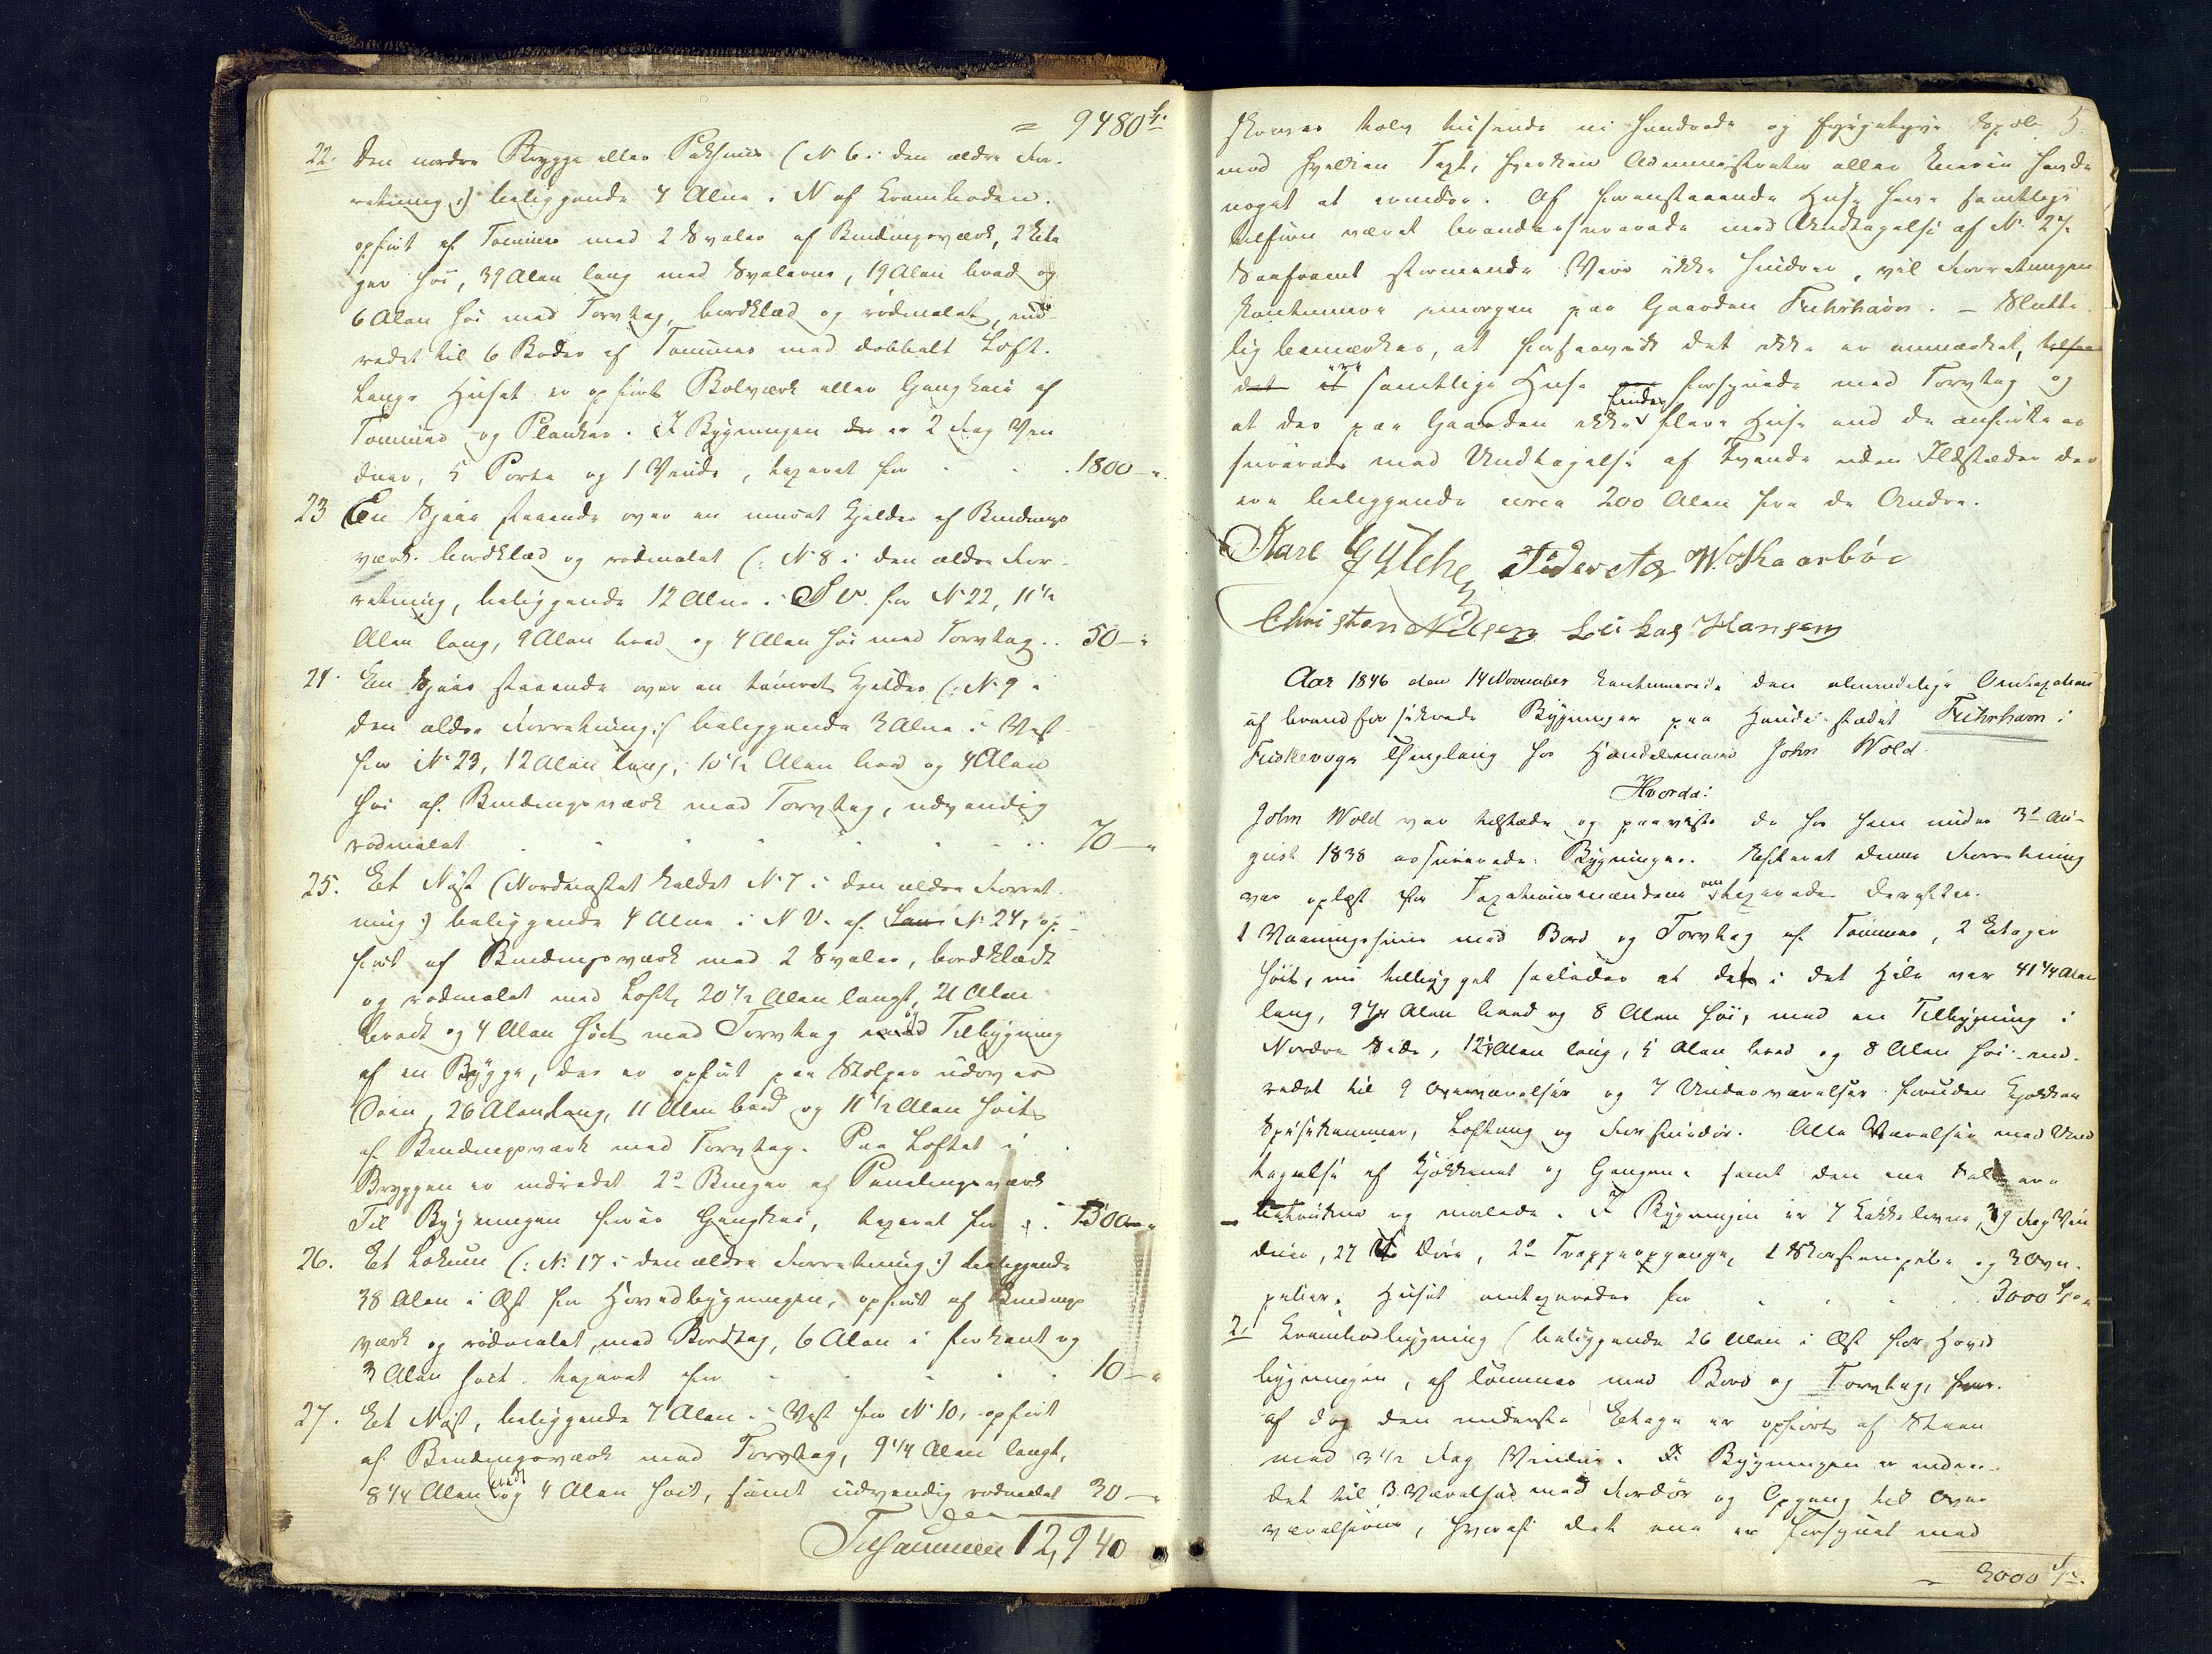 = 9480 S
22. Den nordre Brygge eller Pakhuus (N 6 i den ældre For-
retning :) beliggende 4 Alne i N af Krambaden.
opført af Tømmer med 2 Svaler af Bindingsværk, 2 Eta
ger høi, 39 Alen lang med Svalerne, 19 Alen bred og
6 Alen høi med Torvtag, bordklæd og rødmalet, ind-
redet til 6 Boder af Tømmer med dobbelt Loft.
Langs Huset er opført Bolværk eller Gangkaie af
Tømmer og Planker. I Bygningen er 2 Fag Vin
duer, 5 Porte og 1 Vinde, taxeret for . . . 1800 —
23 En Sjaae staaende over en muret Kjelder af Bindings
værk. bordklæd og rødmalet (: N 8 i den ældre For-
retning, beliggende 12 Alne i S V. for N 22, 11 ½
Alen lang, 9 Alen bred og 4 Alen høi med Torvtag . . 50 —
24. En Sjaae staaende over en tømret Kjelder (: N 9 i
den ældre Forretning :) beliggende 3 Alne i Vest
for N 23, 12 Alen lang, 10 ½ Alen bred og 4 Alen
høi af Bindingsværk med Torvtag, udvendig
rødmalet . . . . . . . 70 —
25. Et Nøst (Nordnøstet kaldet N 7 i den ældre Forret-
ning :) beliggende 4 Alne i N V. af N: 24, op-
ført af Bindingsværk med 2 Svaler, bordklædt
og rødmalet med Loft, 20 ½ Alen langt, 21 Alen
bredt og 4 Alen høit med Torvtag og Tilbygning
af en Brygge, der er opført paa Stolper udover
Søen, 26 Alen lang, 11 Alen bred og 11 ½ Alen høit
af Bindingsværk med Torvtag. Paa Loftet i
Bryggen er indredet 2de Binger af Panelingsværk
Til Bygningen hører Gangkai, taxeret for . . 1500 —
26. Et Lokum (: N. 17 i den ældre Forretning :) beliggende
38 Alen i Øst for Hovedbygningen, opført af Bindings
værk og rødmalet, med Bordtag, 6 Alen i Firkant og
3 Alen høit. taxeret for . . . . . 10 —
27. Et Nøst, beliggende 7 Alen i Vest for N 10, opført
af Bindingsværk med Torvtag, 9 ¼ Alen langt,
8 ¼ Alen bredt og 4 Alen høit, samt udvendig rødmalet 30 —
Tilsammen 12,940
skriver tolv tusende ni hundrede og fyrgetyve Spdl. 5
mod hvilken Taxt, hverken Administrator eller Eieren havde
noget at erindre. Af foranstaaende Huse have samtlige
tilforn været brandassurerede med Undtagelse af N: 27.
Saafremt stormende Veir ikke hindrer, vil Forretningen
kontinuere imorgen paa Gaarden Fuhrhavn. – Slutte-
lig bemærkes, at forsaavidt det ikke er anmærket,
ere samtlige Huse forsynede med Torvtag og
at der paa Gaarden ikke findes flere Huse end de anførte as
surerede med Undtagelse af tvende uden Ildsteder der
ere beliggende circa 200 Alen fra de Andre.
W. Kaarbøe
Christen Nilsen Lukas Hansen
Aar 1846 den 14 November kontinuerede den almindelige Omtaxation
af brandforsikrede Bygninger paa Handelsstedet Fuhrhavn i
Fuskevogs Thinglaug hos Handelsmand John Wold.
Hvorda:
John Wold var tilstede og paaviste de hos ham under 3die Au-
gust 1838 assurerede Bygninger. Efterat denne Forretning
var oplæst for Taxationsmændene omtaxeredes derefter.
1 Vaaningshuus med Bord og Torvtag af Tømmer, 2 Etager
høit, nu tilbygget saaledes at det i det Hele var 41 ¼ Alen
lang, 9 ¾ Alen bred og 8 Alen høi, med en Tilbygning i
Nordre Side, 12 ¼ Alen lang, 5 Alen bred og 8 Alen høi ind-
redet til 9 Overværelser og 7 Underværelser foruden Kjøkken
Spiskammer, Loftgang og Forstuedør. Alle Værelser med Und
tagelse af Kjøkkenet og Gangene samt den ene Sal ere
betrukne og malede. I Bygningen er 7 Kakkelovne, 39 Fag Vin
duer, 27 Døre, 2de Trappeopgange, 1 Skorstenspibe og 3 Ovn-
piber. Huset omtaxeredes for . . . . 3000 S
2. Krambodbygning (beliggende 26 Alen i Øst for Hoved
bygningen, af Tømmer med Bord og Torvtag, hvor-
af dog den underste Etage er opført af Steen
med 3 ½ Fag Vinduer. I Bygningen er indre-
det til 3 Værelser med Fordør og Opgang til Over
værelserne, hvoraf det ene er forsynet med
= 3000 S